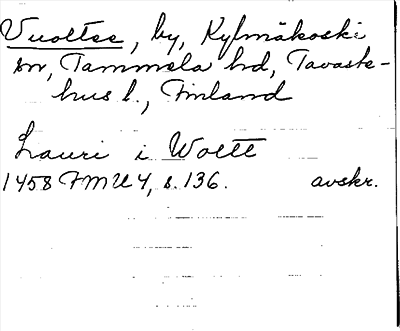 Vuoltee, by, Kylmäkoski
sn, Tammela hd, Tavaste-
hus l., Finland
Lauri i Woltt
1458 FMU 4, s. 136. avskr.